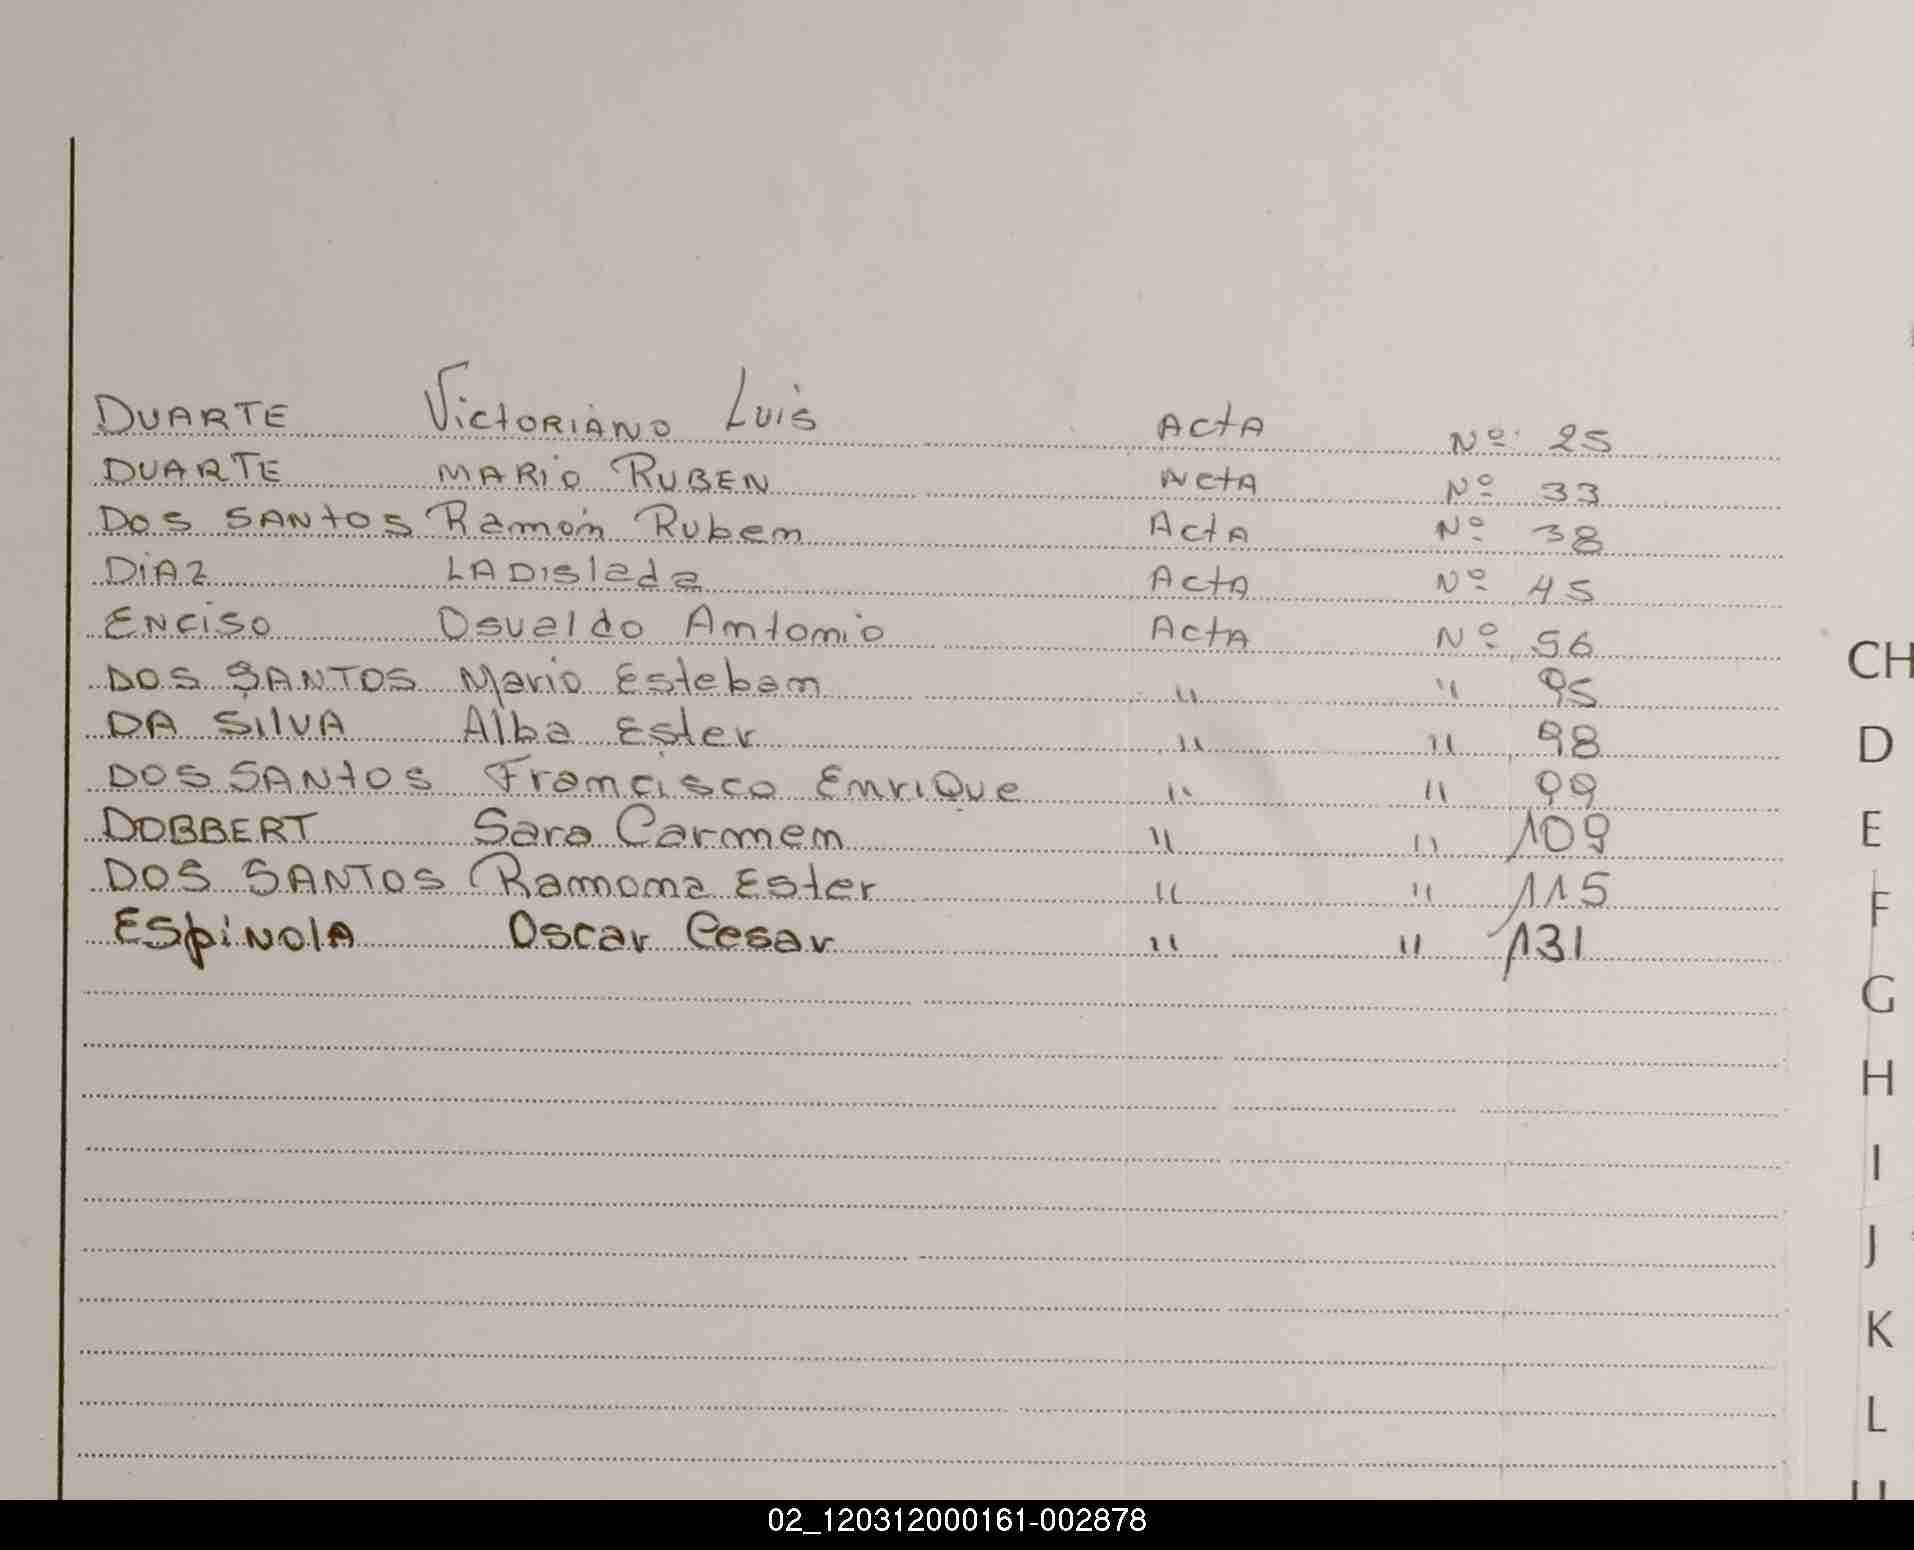 DUARTE Victoriano Luis Acta Nº 25
DUARTE MARIO RUBEN Acta Nº 33
Dos SANtOS Ramón Ruben Acta Nº 38
DiAZ LADislada Acta Nº 45
ENCiSO Osvaldo Antonio Acta Nº 56
DOS SANTOS Mario Esteban " " 95
DA SilVA Alba Ester " " 98
DOS SANtOS Francisco EnriQue " " 99
DOBBERT Sara Carmen " " 109
DOS SANTOS Ramona Ester " " 115
ESpiNOlA Oscar Cesar " " 131
CH
D
E
F
G
H
I
J
K
L
02_120312000161-002878